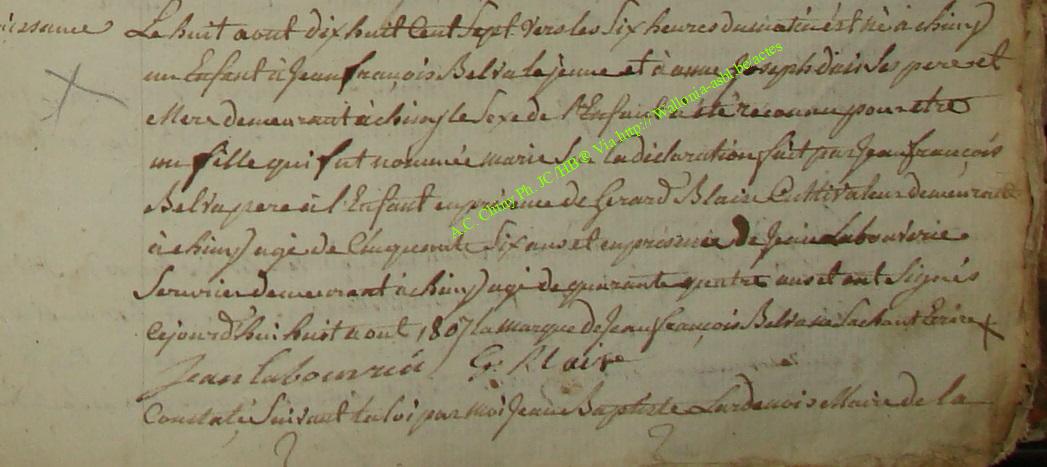 issance
Le huit aout dix huit Cent Sept vers les Six heures du matin est né à chiny
un Enfant à Jean françois Belva le jeune et à anne Joseph dais Ses pere et
Mere demeurant à chiny le Sexe de l'Enfant a été reconnu pour etre
un fille qui fut nommée marie Sur la déclaration fait par Jean françois
Belva pere à l'Enfant en présence de Gerard Blaise Cultivateur demeurant
à chiny agé de Cinquante Six ans et en présence de Jean Labouverie
Serurier demeurant à chiny agé de quarante quatre ans et ont Signés
Cejourd'hui huit aout 1807 la marque de Jean françois Belva ne Sachant Ecrire X
Jean labouvrie G.
Constaté Suivant la loi par moi Jean Baptiste Lardenois Maire de la
A.C. Chiny Ph. JC /HB® Via http://Wallonia-asbl.be/actes